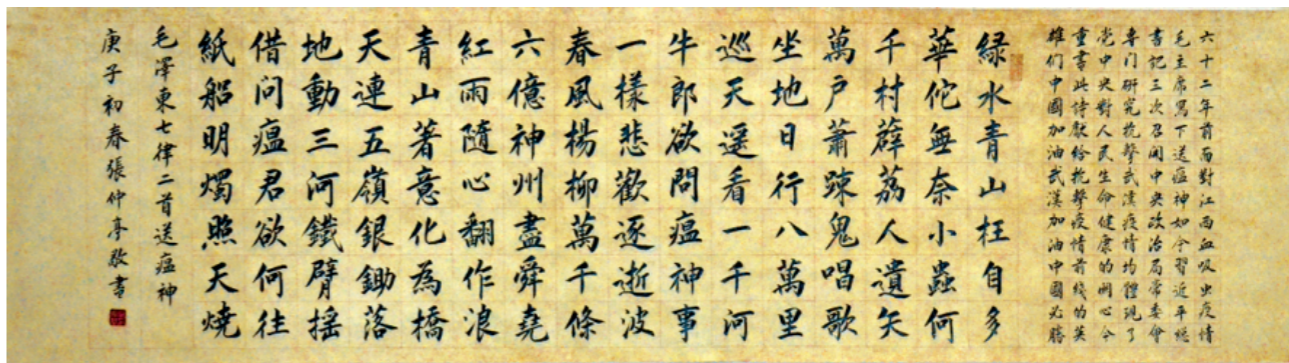 六十二年前面對江西血吸虫疫情
毛主席寫下送瘟神如今習近平總
書記三次召開中央政治局常委會
專门研究抗擊武漢疫情均體現了
党中央對人民生命健康的関心今
重書此诗獻给抗擊疫情前綫的英
雄们中國加油武漢加油中國必勝
緑水青山枉自多
華佗無奈小蟲何
千村薜荔人遺矢
萬戶蕭踈鬼唱歌
坐地日行八萬里
巡天遥看一千河
牛郎欲問瘟神事
一樣悲歡逐逝波
春風楊柳萬千條
六億神州盡舜堯
紅雨隨心翻作浪
青山著意化為橋
天連五嶺銀鋤落
地動三河鐵臂摇
借問瘟君欲何往
紙船明燭照天燒
毛澤東七律二首送瘟神
庚子初春張仲亭敬書